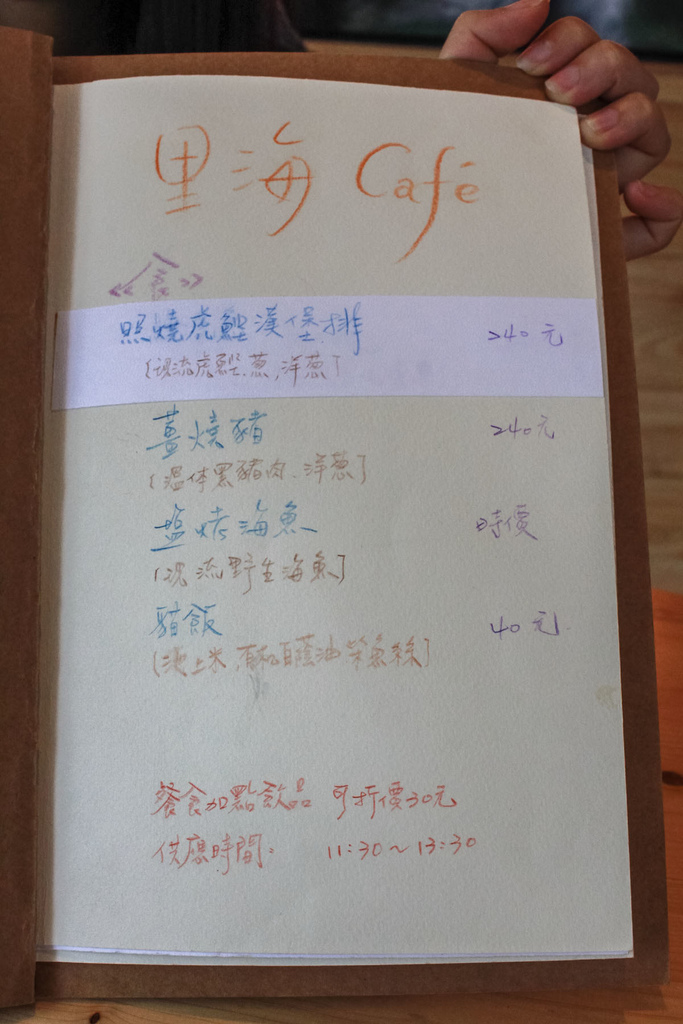 里海 Café
《食》
照燒虎鰹漢堡排 240元
(現流虎鰹.蔥,洋蔥)
薑燒豬 240元
(溫体黑豬肉.洋蔥)
塩烤海魚 時價
(現流野生海魚)
貓飯 40元
(池上米,有機自蔭油 柴魚絲)
餐食加點飲品 可折價30元
供應時間: 11:30~13:30